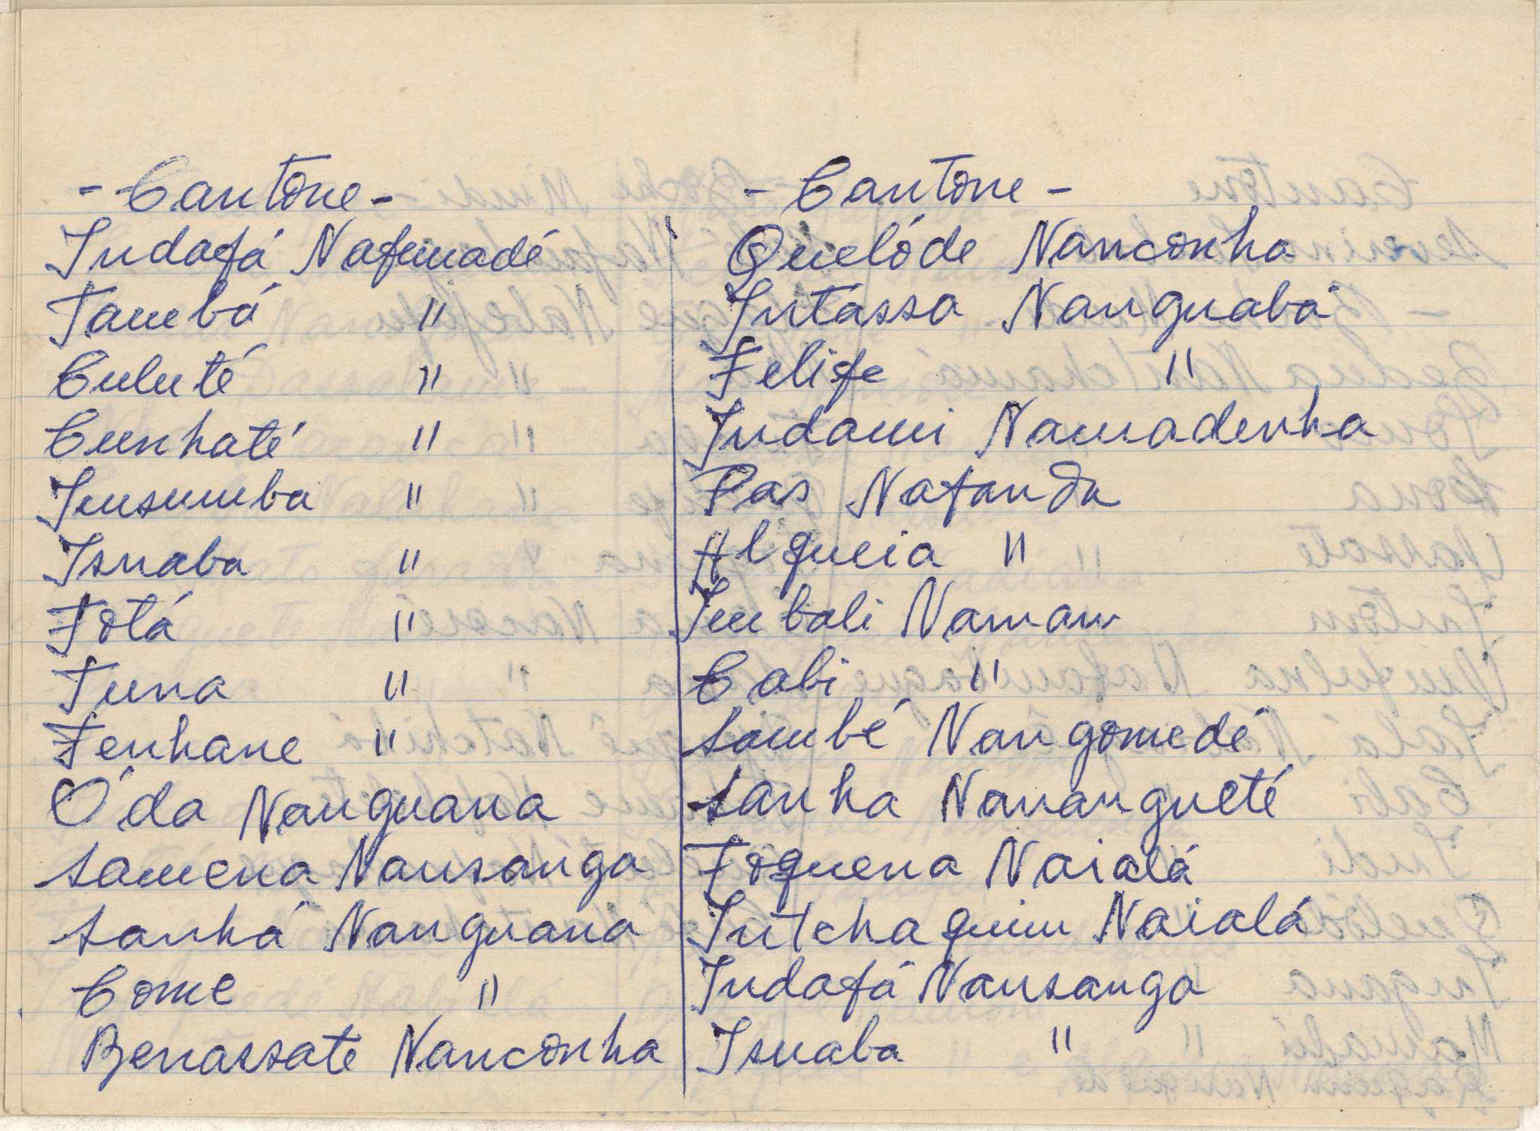 - Cantone -
Indafá Nafunadé
Tambá "
Culuté "
Cunhaté "
Insumba "
Isnaba "
Totá "
Tuna "
Fenhane "
Óda Nanguana
Samena Nansanga
Sanhá Nanguana
Come "
Benassate Nanconha
- Cantone -
Quelóde Nanconha
Intassa Nanguabá
Felife "
Indami Namadenha
Pas Nafanda
Alqueia "
Imbali Namam
Cabi "
Sambé Nangomedé
Sanha Nanangueté
Foquena Naialá
Intchaquim Naialá
Indafá Nansanga
Isnaba "